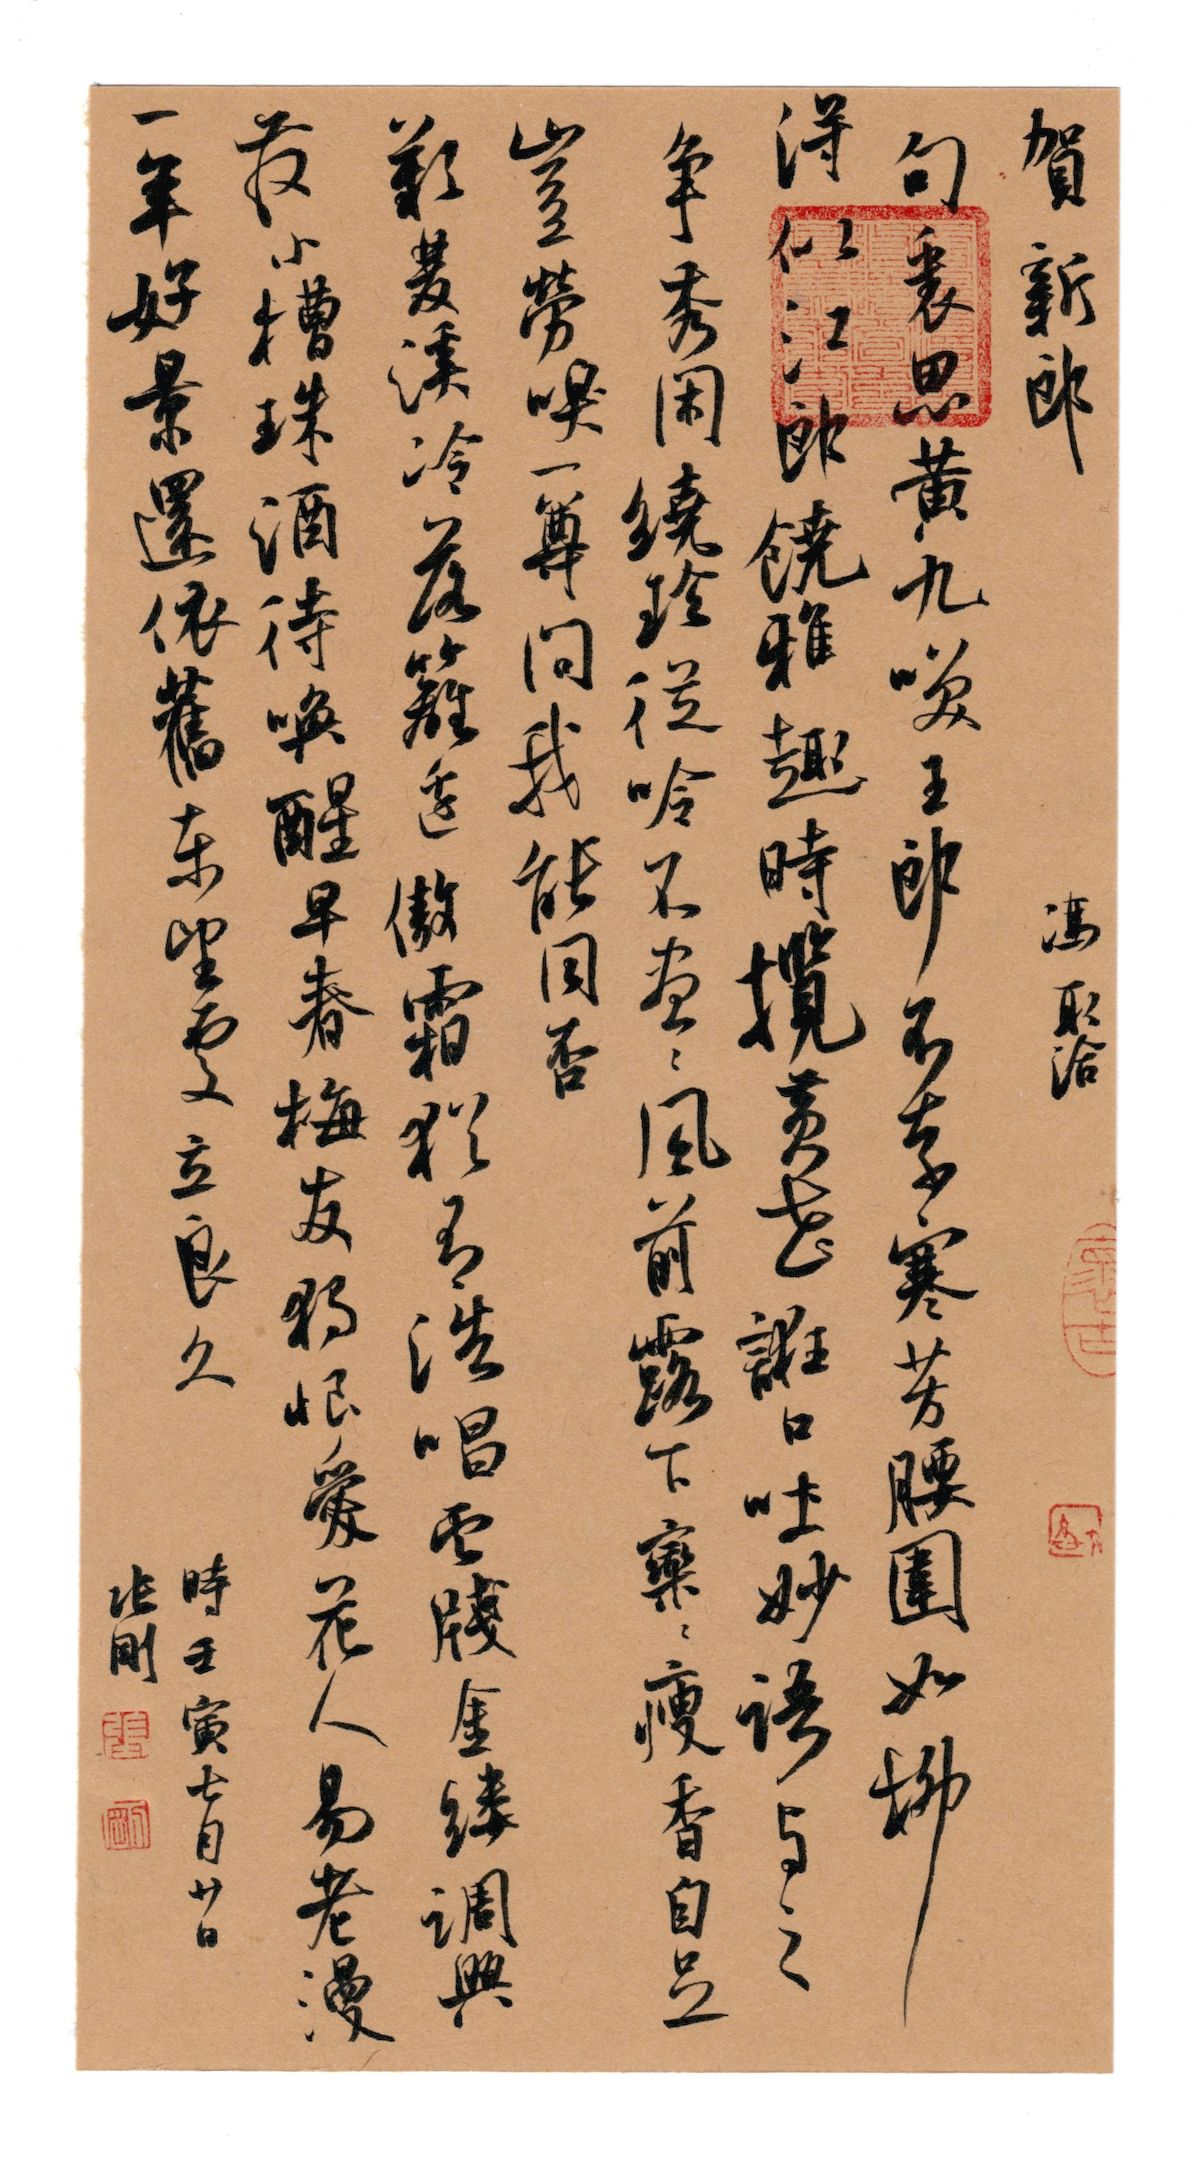 賀新郎 馮取洽
句裏思黄九嘆王郎不奈寒芳腰圍如柳
得似江郎饒雅趣時攬黄花誰口吐妙語与之
争秀閑繞珍從吟不盡〻風前露下欒〻瘦香自足
豈勞嗅一尊問我能同否
歎菱溪冷落籬邊傲霜猶有浩唱雲牋金縷調興
發小槽珠酒待喚醒早春梅友獨恨愛花人易老漫
一年好景還依舊東望處立良久
時壬寅七月廿日
張剛